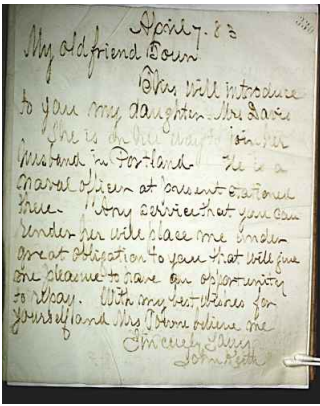 April 7. 83
330
My old friend Town
This will introduce
to you my daughter Mrs Davis
She is on her way to join her
husband in Portland. He is a
naval officer at present stationed
there. Any service that you can
render her will place me under
great obligation to you that will give
me pleasure to have an opportunity
to repay. With my best wishes for
yourself and Mrs Towne believe me
Sincerely Yours
John